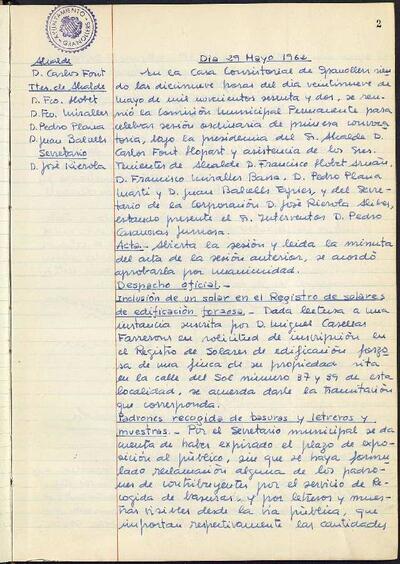 AYUNTAMIENTO DE GRANOLLERS
2
Alcalde
D. Carlos Font
Ttes. de Alcalde
D. Fco. Llobet
D. Fco. Miralles
D. Pedro Plana
D. Juan Balcells
Secretario
D. José Rierola
Dia 29 Mayo 1962
En la Casa Consistorial de Granollers sien
do las diecinueve horas del dia veintinueve de
mayo de mil novecientos sesenta y dos, se reu
nió la Comisión Municipal Permanente para
celebrar sesión ordinaria de primera convoca
toria, bajo la presidencia del Sr. Alcalde D.
Carlos Font Llopart y asistencia de los Sres.
Tenientes de Alcalde D. Francisco Llobet
D. Francisco Miralles D. Pedro Plana
Marti y D. Juan Balcells y del Secre
tario de la Corporación D. José Rierola
estando presente el Sr. Interventor D. Pedro
Canovas
Acta.- Abierta la sesión y leida la minuta
del acta de la sesión anterior, se acordó
aprobarla por unanimidad.
Despacho oficial.-
Inclusión de un solar en el Registro de solares
de edificación forzosa.- Dada lectura a una
instancia suscrita por D. Miguel Casellas
Farreron en solicitud de inscripción en
el Registro de Solares de edificación forzo
sa de una finca de su propiedad sita
en la calle del Sol número 37 y 39 de esta
localidad, se acuerda darle la tramitación
que corresponda.
Padrones recogida de basuras y letreros y
muestras.- Por el Secretario municipal se da
cuenta de haber expirado el plazo de expo-
sición al público, sin que se haya formu
lado reclamación alguna de los padro-
nes de contribuyentes por el servicio de Re
cogida de basuras, y por letreros y mues-
tras visibles desde la via pública, que
importan respectivamente las cantidades